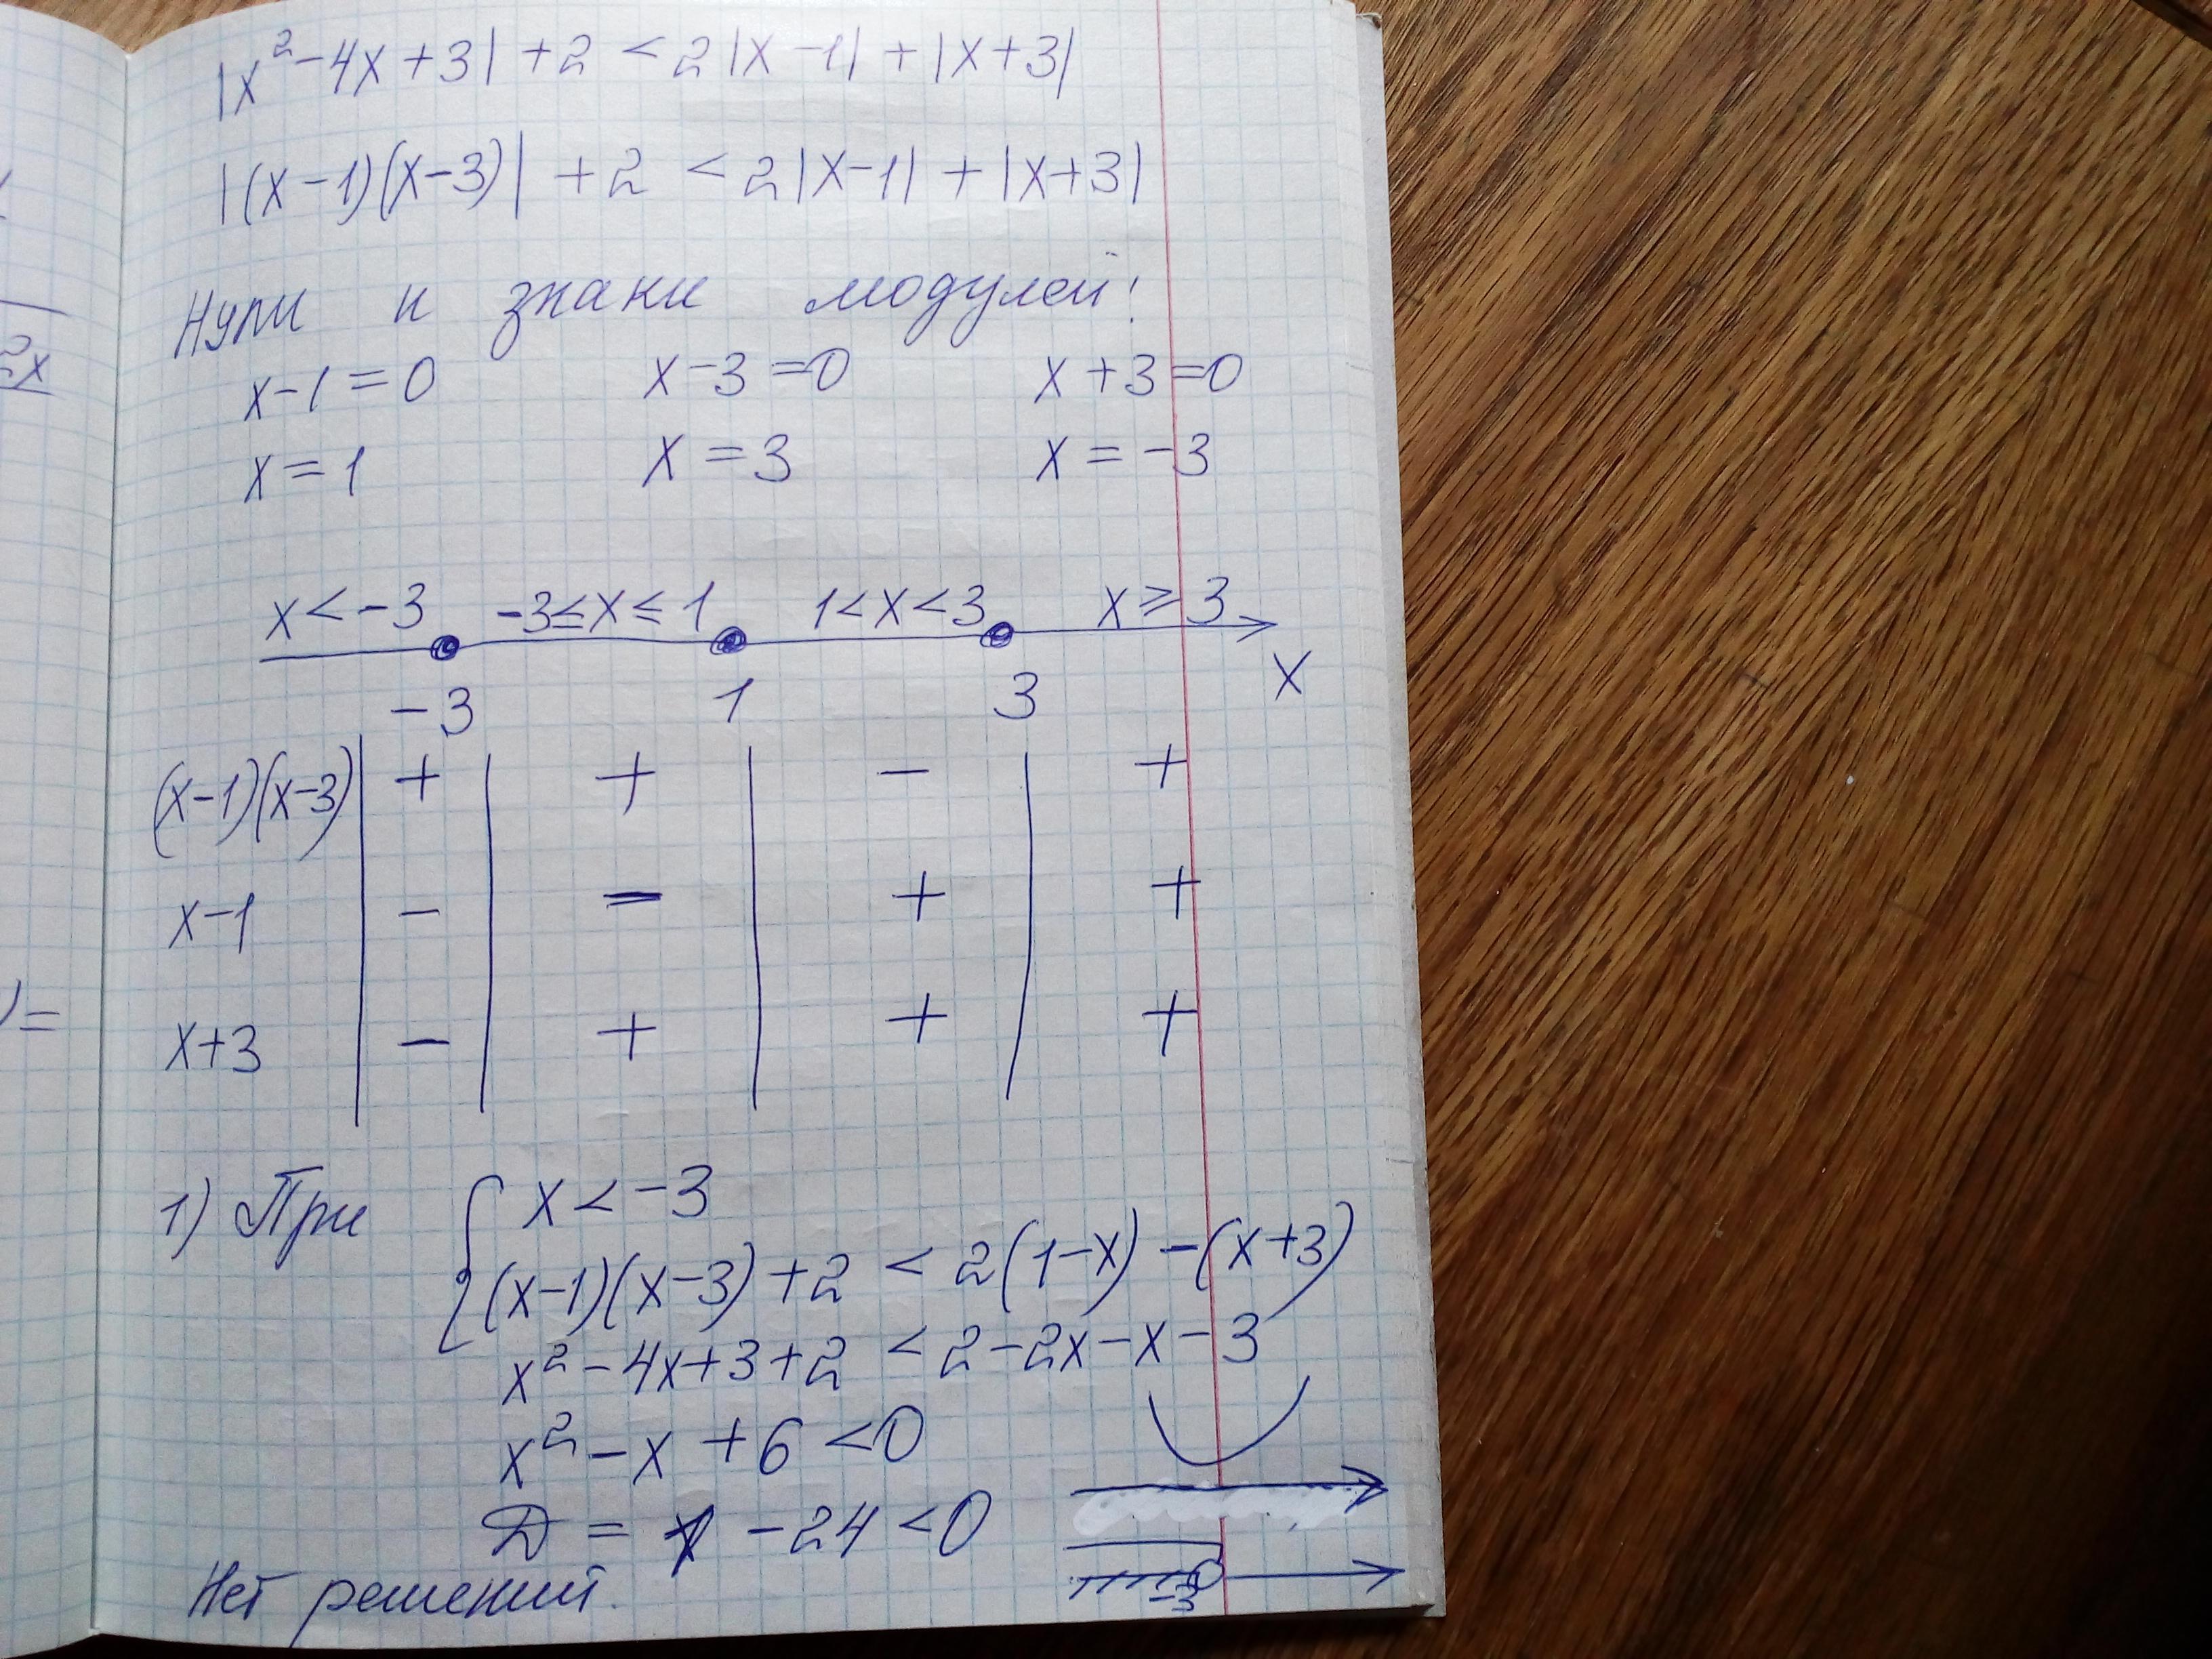 |x² - 4x + 3| + 2 < 2|x - 1| + |x + 3|
|(x - 1)(x - 3)| + 2 < 2|x - 1| + |x + 3|
Нули и знаки модулей:
x - 1 = 0 x - 3 = 0 x + 3 = 0
x = 1 x = 3 x = -3
x < -3 -3 ≤ x ≤ 1 1 < x < 3 x ≥ 3
-3 1 3 x
(x-1)(x-3) + + - +
x-1 - - + +
x+3 - + + +
1) При x < -3
(x-1)(x-3) + 2 < 2(1-x) - (x+3)
x² - 4x + 3 + 2 < 2 - 2x - x - 3
x² - x + 6 < 0
Д = 1 - 24 < 0
-3
Нет решений.
2x
)=